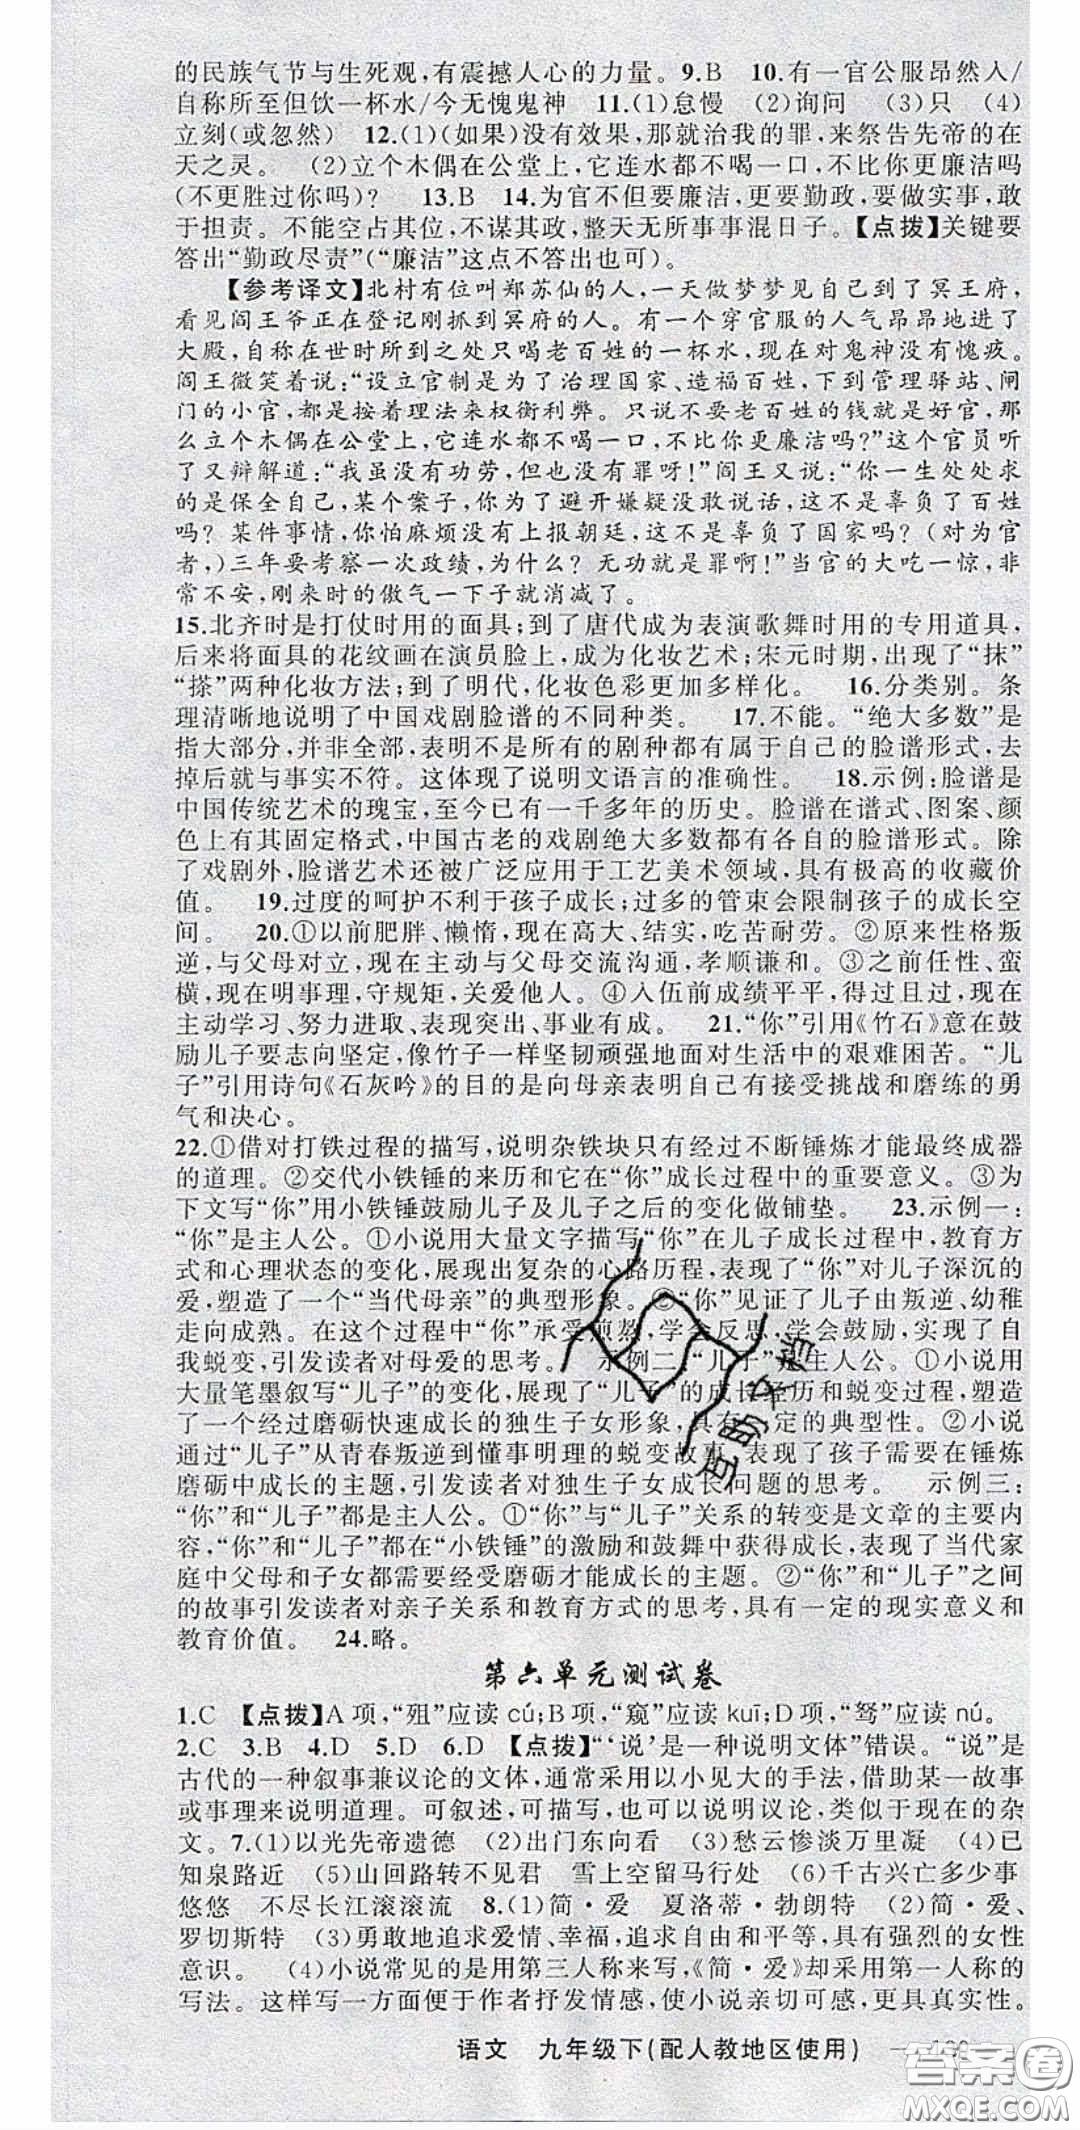 的民族气节与生死观,有震撼人心的力量。9.B 10.有一官公服昂然入/
自称所至但饮一杯水/今无愧鬼神 11.(1)怠慢 (2)询问 (3)只 (4)
立刻(或忽然) 12.(1)(如果)没有效果,那就治我的罪,来祭告先帝的在
天之灵。 (2)立个木偶在公堂上,它连水都不喝一口,不比你更廉洁吗
(不更胜过你吗)? 13.B 14.为官不但要廉洁,更要勤政,要做实事,敢
于担责。不能空占其位,不谋其政,整天无所事事混日子。【点拨】关键要
答出“勤政尽责”(“廉洁”这点不答出也可)。
【参考译文】北村有位叫郑苏仙的人,一天做梦梦见自己到了冥王府,
看见阎王爷正在登记刚抓到冥府的人。有一个穿官服的人气昂昂地进了
大殿,自称在世时所到之处只喝老百姓的一杯水,现在对鬼神没有愧疚。
阎王微笑着说:“设立官制是为了治理国家、造福百姓,下到管理驿站、闸
门的小官,都是按着理法来权衡利弊。只说不要老百姓的钱就是好官,那
么立个木偶在公堂上,它连水都不喝一口,不比你更廉洁吗?”这个官员听
了又辩解道:“我虽没有功劳,但也没有罪呀!”阎王又说:“你一生处处求
的是保全自己,某个案子,你为了避开嫌疑没敢说话,这不是辜负了百姓
吗?某件事情,你怕麻烦没有上报朝廷,这不是辜负了国家吗?(对为官
者,)三年要考察一次政绩,为什么?无功就是罪啊!”当官的大吃一惊,非
常不安,刚来时的傲气一下子就消减了。
15.北齐时是打仗时用的面具;到了唐代成为表演歌舞时用的专用道具,
后来将面具的花纹画在演员脸上,成为化妆艺术;宋元时期,出现了“抹”
“搽”两种化妆方法;到了明代,化妆色彩更加多样化。 16.分类别。条
理清晰地说明了中国戏剧脸谱的不同种类。 17.不能。“绝大多数”是
指大部分,并非全部,表明不是所有的剧种都有属于自己的脸谱形式,去
掉后就与事实不符。这体现了说明文语言的准确性。 18.示例:脸谱是
中国传统艺术的瑰宝,至今已有一千多年的历史。脸谱在谱式、图案、颜
色上有其固定格式,中国古老的戏剧绝大多数都有各自的脸谱形式。除
了戏剧外,脸谱艺术还被广泛应用于工艺美术领域,具有极高的收藏价
值。 19.过度的呵护不利于孩子成长;过多的管束会限制孩子的成长空
间。 20.①以前肥胖、懒惰,现在高大、结实,吃苦耐劳。②原来性格叛
逆,与父母对立,现在主动与父母交流沟通,孝顺谦和。③之前任性、蛮
横,现在明事理,守规矩,关爱他人。④入伍前成绩平平,得过且过,现在
主动学习、努力进取、表现突出、事业有成。 21.“你”引用《竹石》意在鼓
励儿子要志向坚定,像竹子一样坚韧顽强地面对生活中的艰难困苦。“儿
子”引用诗句《石灰吟》的目的是向母亲表明自己有接受挑战和磨练的勇
气和决心。
22.①借对打铁过程的描写,说明杂铁块只有经过不断锤炼才能最终成器
的道理。②交代小铁锤的来历和它在“你”成长过程中的重要意义。③为
下文写“你”用小铁锤鼓励儿子及儿子之后的变化做铺垫。 23.示例一:
“你”是主人公。①小说用大量文字描写“你”在儿子成长过程中,教育方
式和心理状态的变化,展现出复杂的心路历程,表现了“你”对儿子深沉的
爱,塑造了一个“当代母亲”的典型形象。②“你”见证了儿子由叛逆、幼稚
走向成熟。在这个过程中“你”承受煎熬,学会反思,学会鼓励,实现了自
我蜕变,引发读者对母爱的思考。 示例二:“儿子”是主人公。①小说用
大量笔墨叙写“儿子”的变化,展现了“儿子”的成长经历和蜕变过程,塑造
了一个经过磨砺快速成长的独生子女形象,具有一定的典型性。②小说
通过“儿子”从青春叛逆到懂事明理的蜕变故事,表现了孩子需要在锤炼
磨砺中成长的主题,引发读者对独生子女成长问题的思考。 示例三:
“你”和“儿子”都是主人公。①“你”与“儿子”关系的转变是文章的主要内
容,“你”和“儿子”都在“小铁锤”的激励和鼓舞中获得成长,表现了当代家
庭中父母和子女都需要经受磨砺才能成长的主题。②“你”和“儿子”之间
的故事引发读者对亲子关系和教育方式的思考,具有一定的现实意义和
教育价值。 24.略。
第六单元测试卷
1.C 【点拨】A项,“殂”应读cú;B项,“窥”应读kuī;D项,“驽”应读nú。
2.C 3.B 4.D 5.D 6.D 【点拨】“‘说’是一种说明文体”错误。“说”是
古代的一种叙事兼议论的文体,通常采用以小见大的手法,借助某一故事
或事理来说明道理。可叙述,可描写,也可以说明议论,类似于现在的杂
文。7.(1)以光先帝遗德 (2)出门东向看 (3)愁云惨淡万里凝 (4)已
知泉路近 (5)山回路转不见君 雪上空留马行处 (6)千古兴亡多少事
悠悠 不尽长江滚滚流 8.(1)简·爱 夏洛蒂·勃朗特 (2)简·爱、
罗切斯特 (3)勇敢地追求爱情、幸福,追求自由和平等,具有强烈的女性
意识。 (4)小说常见的是用第三人称来写,《简·爱》却采用第一人称的
写法。这样写一方面便于作者抒发情感,使小说亲切可感,更具真实性。
语文 九年级下(配人教地区使用)
互助文档
答案卷
MXQE.COM